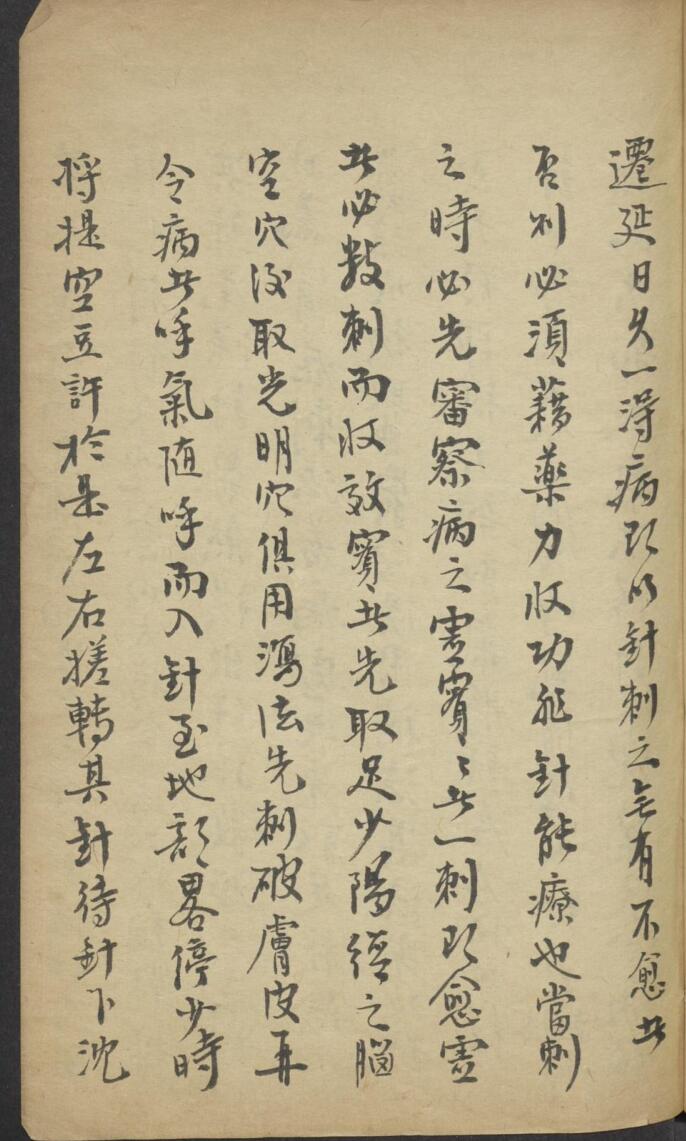 遷延日久一得病即以針刺之無有不愈者
否則必須藉藥力收功非針能療也當刺
之時必先審察病之虛實々者一刺即愈虛
者必數刺而收效實者先取足少陽經之腦
空穴後取光明穴俱用瀉法先刺破膚皮再
令病者呼氣隨呼而入針至地部畧停少時
將提空豆許於是左右搓轉其針待針下沈